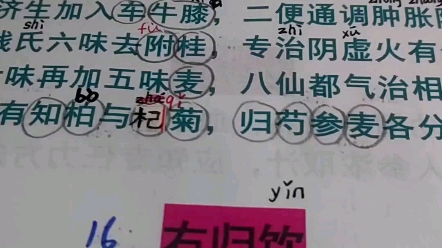 济生加入车牛膝，二便通调肿胀
fu
shi zhi xu
氏六味去附桂，专治阴虚火有
味再加五味麦，八仙都气治相
bo qi
有知柏与杞菊，归芍参麦各分
yǐn
16 右归饮